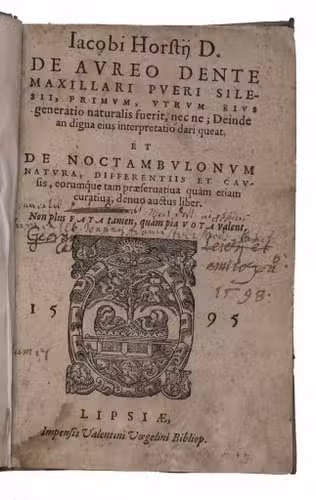 Iacobi Horstij D.
DE AVREO DENTE
MAXILLARI PVERI SILE-
SII, PRIMVM, VTRVM EIVS
generatio naturalis fuerit, nec ne; Deinde
an digna eius interpretatio dari queat.
ET
DE NOCTAMBVLONVM
NATVRA, DIFFERENTIIS ET CAV-
sis, eorumque tam præseruatiua quàm etiam
curatiua, denuo auctus liber.
Non plus FATA tamen, quàm pia VOTA valent,
1598.
15 95
LIPSIÆ,
Impensis Valentini Vœgelini Bibliop.